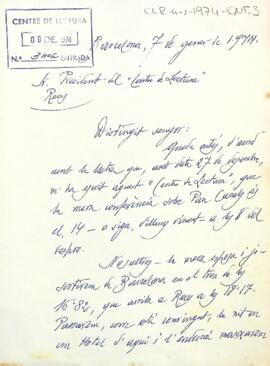 CLR 4-1-1974-ENT.3
CENTRE DE LECTURA
09 ENE. 1974
N.º 3 ENTRADA
Barcelona, 7 de gener de 1974.
Sr. President del "Centre de Lectura"
Reus
Distingit senyor:
Queda entès, d'acord
amb la lletra que, amb data 27 de desembre,
m'ha escrit aquest "Centre de Lectura", que
la meva conferència sobre Pau Casals és
el 14 - o siga, dilluns vinent a les 8 del
vespre.
Nosaltres - la meva esposa i jo -
sortirem de Barcelona en el tren de les
16'82, que arriba a Reus a les 18'17.
Passarem, com està convingut, la nit en
un Hotel d'aquí i l'endemà marxarem